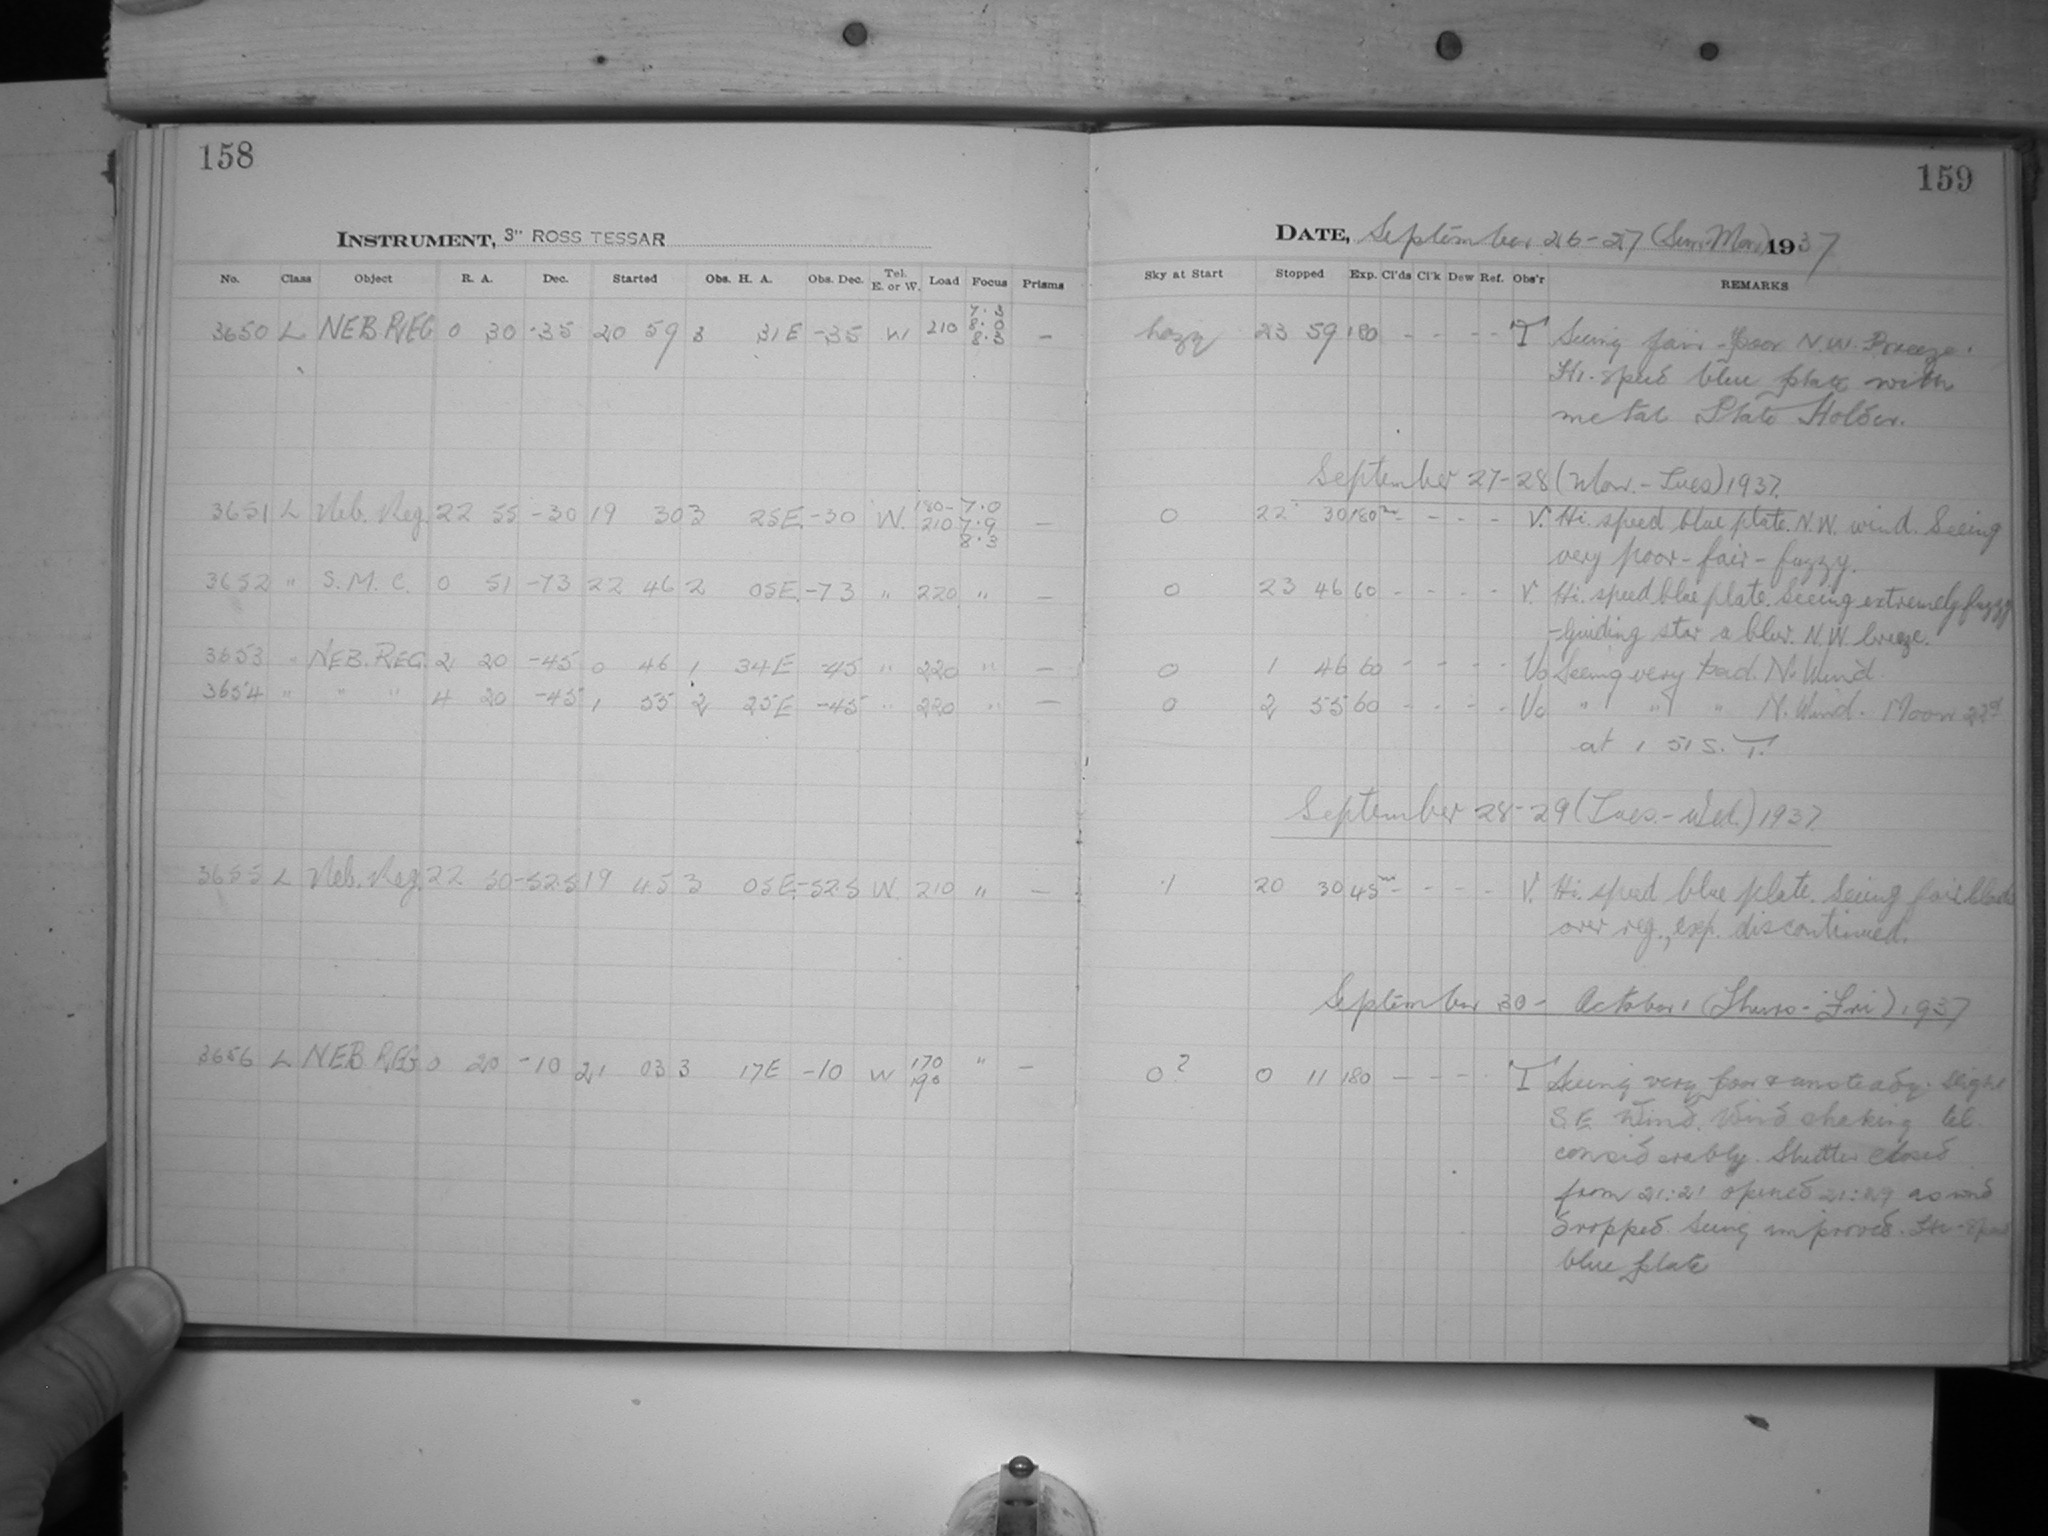 158
INSTRUMENT, 3" ROSS TESSAR
No. Class Object R. A. Dec. Started Obs. H. A. Obs. Dec. Tel. E. or W. Load Focus Prisms
3650 L NEB REG 0 30 -35 20 59 3 31 E -35 W 210 7.3 8.0 8.3 -
3651 L Neb. Reg. 22 55 -30 19 30 3 25 E. -30 W. 180- 210 7.0 7.9 8.3 -
3652 " S. M. C. 0 51 -73 22 46 2 05 E. -73 " 220 " -
3653 " NEB. REG. 2 20 -45 0 46 1 34 E -45 " 220 " -
3654 " " " 4 20 -45 1 55 2 25 E -45 " 220 " -
3655 L Neb. Reg. 22 50 -52.5 19 45 3 05 E. -52.5 W. 210 " -
3656 L NEB REG 0 20 -10 21 03 3 17 E -10 W 170 190 " -
159
DATE, September 26-27 (Sun-Mon) 1937
Sky at Start Stopped Exp. Cl'ds Cl'k Dew Ref. Obs'r REMARKS
hazy 23 59 180 - - - - T Seeing fair - poor N.W. Breeze.
Hi. speed blue plate with
metal Plate Holder.
September 27-28 (Mon. - Tues) 1937.
0 22 30 180m - - - - V. Hi. speed blue plate. N.W. wind. Seeing
very poor - fair - fuzzy.
0 23 46 60 - - - - V. Hi. speed blue plate. Seeing extremely fuzzy
- Guiding star a blur. N.W. breeze.
0 1 46 60 - - - - Vo Seeing very bad. N. Wind.
0 2 55 60 - - - - Vo " " " N. Wind. Moon
at 1 51 S. T.
September 28-29 (Tues. - Wed.) 1937.
.1 20 30 45m - - - - V. Hi. speed blue plate. Seeing fair
over reg., exp. discontinued.
September 30 - October 1 (Thurs - Fri) 1937
0? 0 11 180 - - - - T Seeing very poor & unsteady. Slight
S.E. Wind. Wind shaking tel.
considerably. Shutter closed
from 21:21 opened 21:29 as wind
dropped. Seeing improved. Hi-speed
blue plate